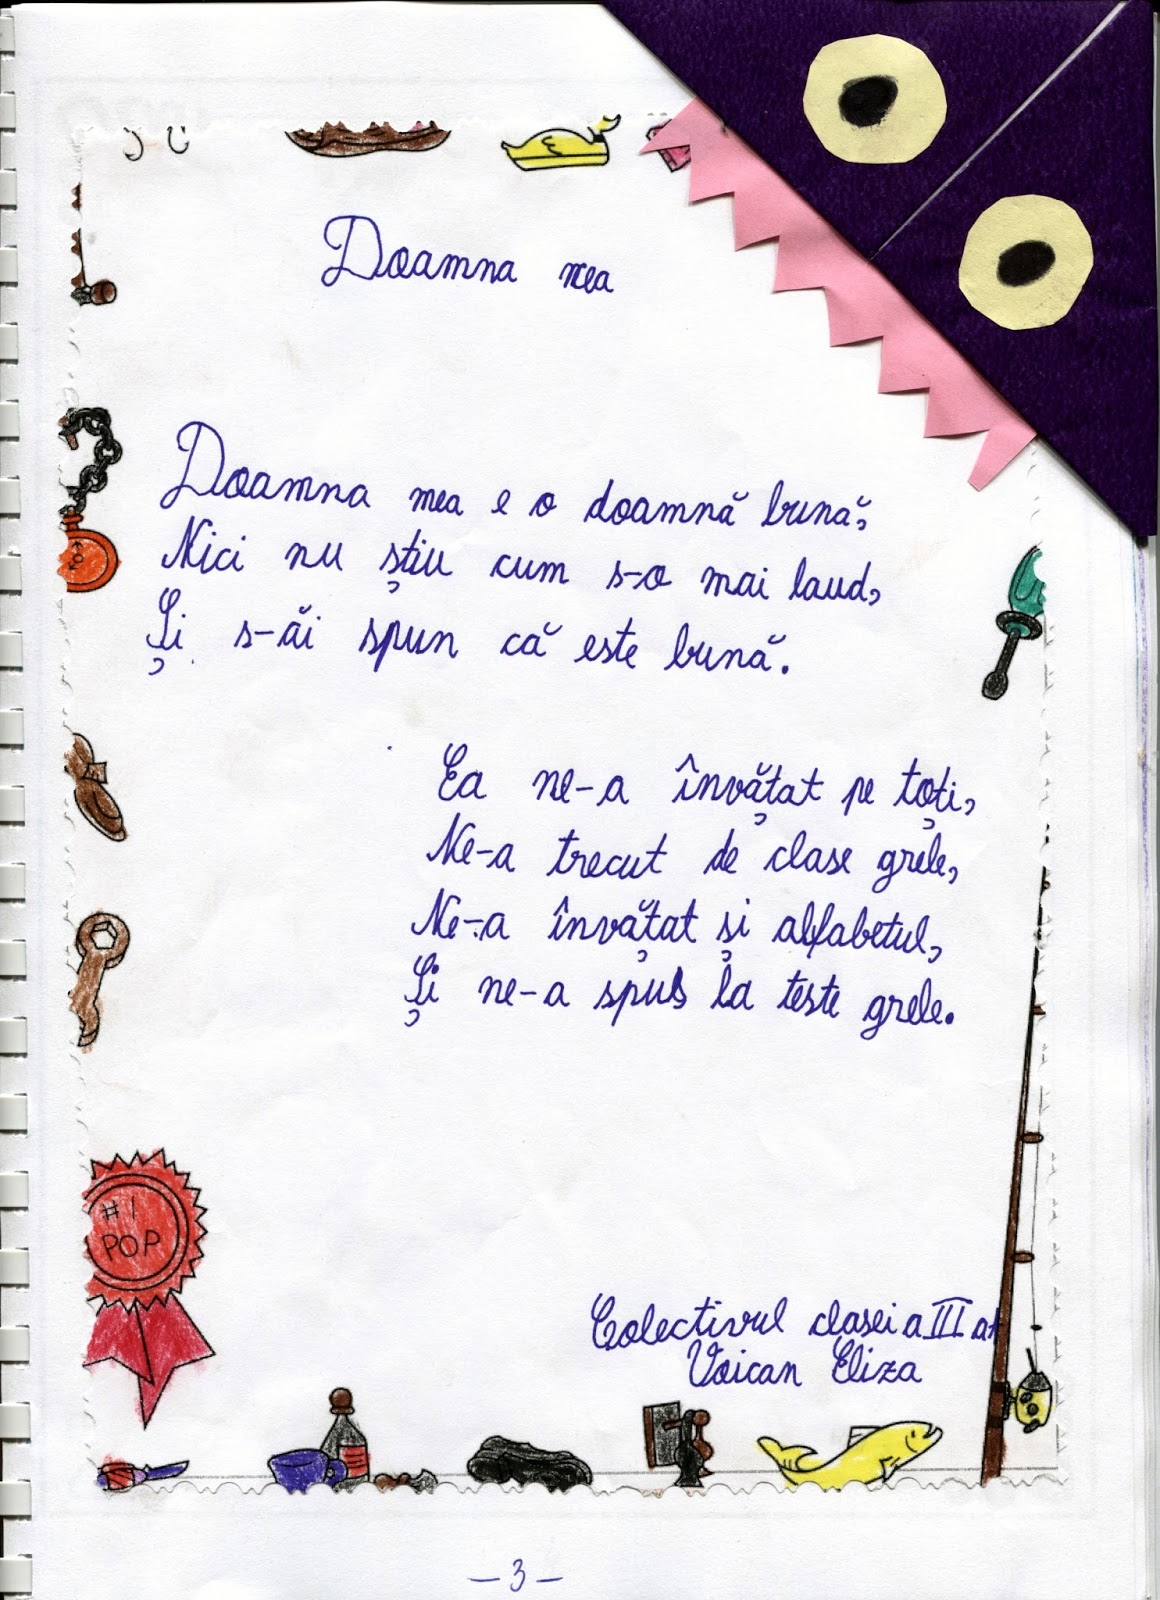 Doamna mea
Doamna mea e o doamnă bună,
Nici nu știu cum s-o mai laud,
Și s-ăi spun că este bună.
Ea ne-a învățat pe toți,
Ne-a trecut de clase grele,
Ne-a învățat și alfabetul,
Și ne-a spus la teste grele.
#1
POP
Colectivul clasei a III a A
Voican Eliza
-3-